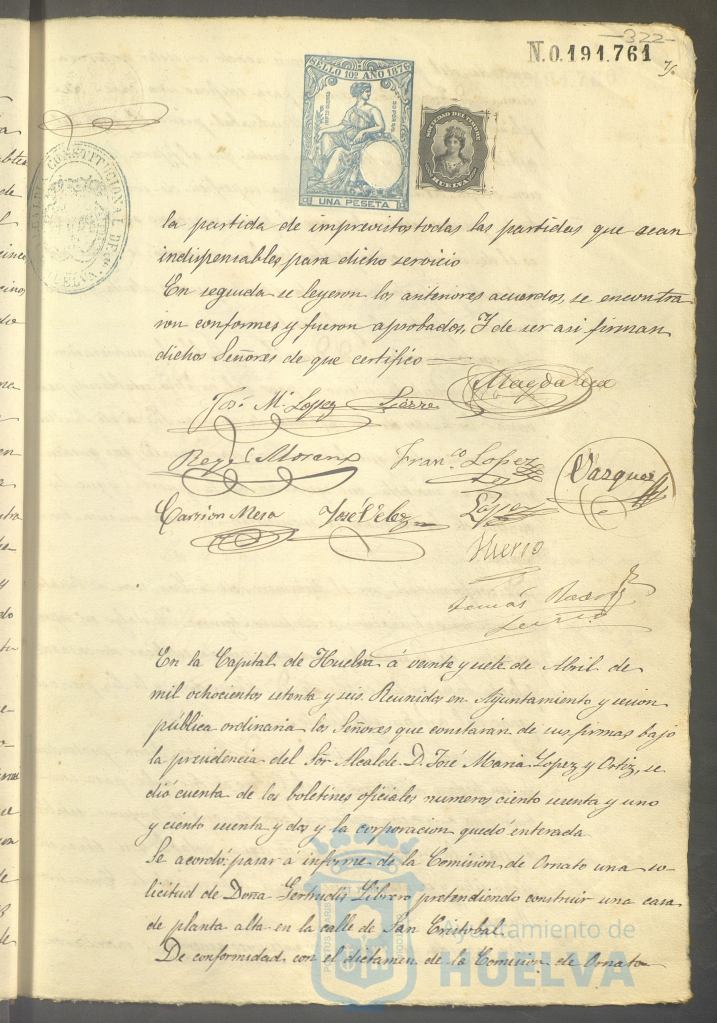 322
N.0.191.761
SELLO 10º AÑO 1876
UNA PESETA
SOCIEDAD DEL TIMBRE
HUELVA
ALCALDIA CONSTITUCIONAL DE
HUELVA
la partida de imprevistos todas las partidas que sean
indispensables para dicho servicio
En seguida se leyeron los anteriores acuerdos, se encontra
ron conformes y fueron aprobados, Y de ser asi firman
dichos Señores de que certifico
Magdalena
José Mª Lopez
Reyes Moreno Franco. Lopez Vazquez
Carrion Mesa José Velez Lopez
Hierro
Tomás
En la Capital de Huelva á veinte y siete de Abril de
mil ochocientos setenta y seis. Reunidos en Ayuntamiento y sesion
pública ordinaria los Señores que constarán de sus firmas bajo
la presidencia del Sor Alcalde D. José Maria Lopez y Ortiz, se
dió cuenta de los boletines oficiales numeros ciento sesenta y uno
y ciento sesenta y dos y la corporacion quedó enterada
Se acordó: pasar á informe de la Comision de Ornato una so-
licitud de Doña Gertrudis Librero pretendiendo construir una casa
de planta alta en la calle de San Cristobal
De conformidad con el dictamen de la Comision de Ornato
Ayuntamiento de
HUELVA